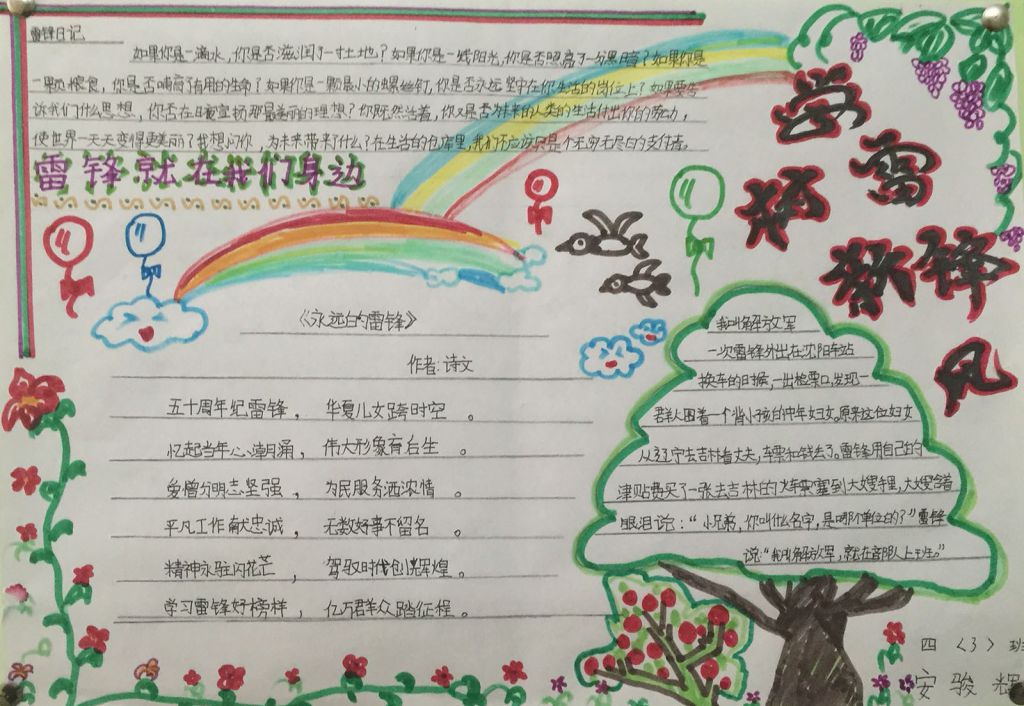 雷锋日记
如果你是一滴水，你是否滋润了一寸土地？如果你是一线阳光，你是否照亮了一分黑暗？如果你是
一颗粮食，你是否哺育了有用的生命？如果你是一颗最小的螺丝钉，你是否永远坚守在你生活的岗位上？如果要告
诉我们什么思想，你否在日夜宣扬那最美丽的理想？你既然活着，你又是否为将来的人类的生活付出你的劳动，
使世界一天天变得更美丽？我想问你，为未来带来了什么？在生活的仓库里，我们不应该只是个无穷无尽的支付者。
雷锋就在我们身边
学雷锋
新风
《永远的雷锋》
作者：诗文
五十周年纪雷锋，华夏儿女跨时空。
忆起当年心潮涌，伟大形象育后生。
爱憎分明志坚强，为民服务洒浓情。
平凡工作献忠诚，无数好事不留名。
精神永驻闪花芒，驾驭时代创辉煌。
学习雷锋好榜样，亿万群众踏征程。
我叫解放军
一次雷锋外出在沈阳车站
换车的时候，一出检票口，发现一
群人围着一个背小孩的中年妇女。原来这位妇女
从辽宁去吉林看丈夫，车票和钱丢了。雷锋用自己的
津贴费买了一张去吉林的火车票塞到大嫂手里，大嫂含着
眼泪说：“小兄弟，你叫什么名字，是哪个单位的？”雷锋
说：“我叫解放军，就在部队上班。”
四〈3〉班
安骏辉